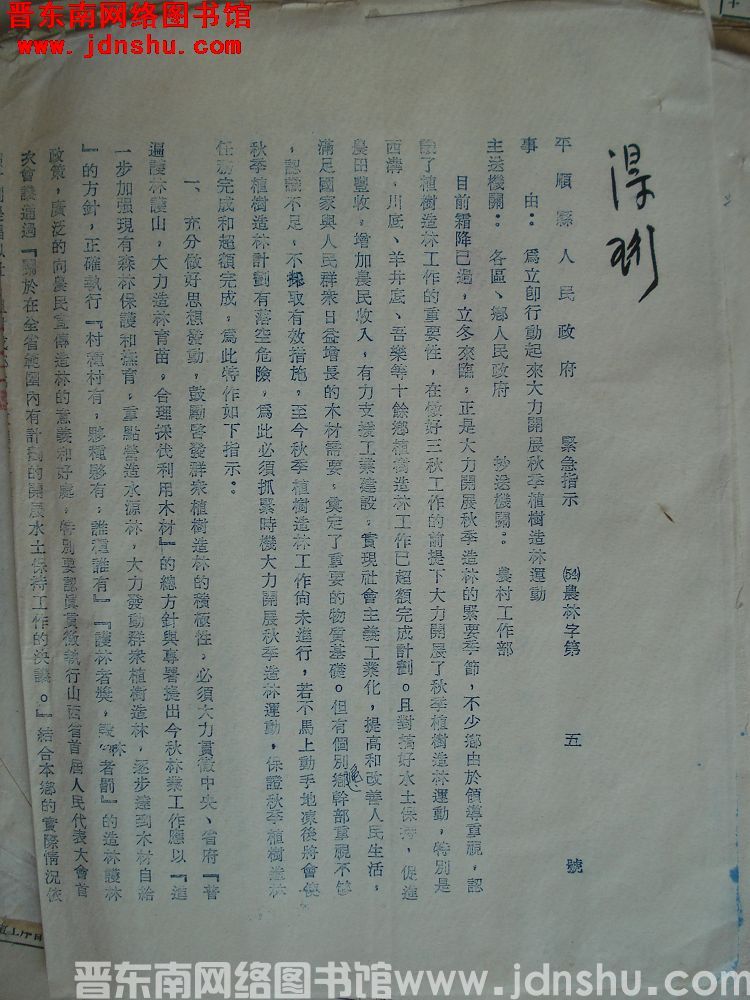 晋东南网络图书馆
www.jdnshu.com
平順縣人民政府 緊急指示 (54)農林字第 五 號
事 由：為立卽行動起來大力開展秋季植樹造林運動
主送機關：各區、鄉人民政府 抄送機關：農村工作部
目前霜降已過，立冬來臨，正是大力開展秋季造林的緊要季節，不少鄉由於領導重視，認
識了植樹造林工作的重要性，在做好三秋工作的前提下大力開展了秋季植樹造林運動，特別是
西溝，川底、羊井底、吾樂等十餘鄉植樹造林工作已超額完成計劃。且對搞好水土保持，促進
農田豐收，增加農民收入，有力支援工業建設，實現社會主義工業化，提高和改善人民生活，
滿足國家與人民群衆日益增長的木材需要，奠定了重要的物質基礎。但有個別鄉幹部重視不够
，認識不足，不採取有效措施，至今秋季植樹造林工作尙未進行，若不馬上動手地凍後將會使
秋季植樹造林計劃有落空危險，為此必須抓緊時機大力開展秋季造林運動，保證秋季植樹造林
任務完成和超額完成，為此特作如下指示：
一、充分做好思想發動，鼓勵啓發群衆植樹造林的積極性，必須大力貫徹中央、省府『普
遍護林護山，大力造林育苗，合理採伐利用木材』的總方針與專署提出今秋林業工作應以『進
一步加强現有森林保護和撫育，重點營造水源林，大力發動群衆植樹造林，逐步達到木材自給
』的方針，正確執行『村種村有，夥種夥有，誰種誰有』『護林者獎，毀林者罰』的造林護林
政策，廣泛的向農民宣傳造林的意義和好處，特別要認眞貫徹執行山西省首屆人民代表大會首
次會議通過『關於在全省範圍內有計劃的開展水土保持工作的決議。』結合本鄉的實際情況依
晋东南网络图书馆www.jdnshu.com